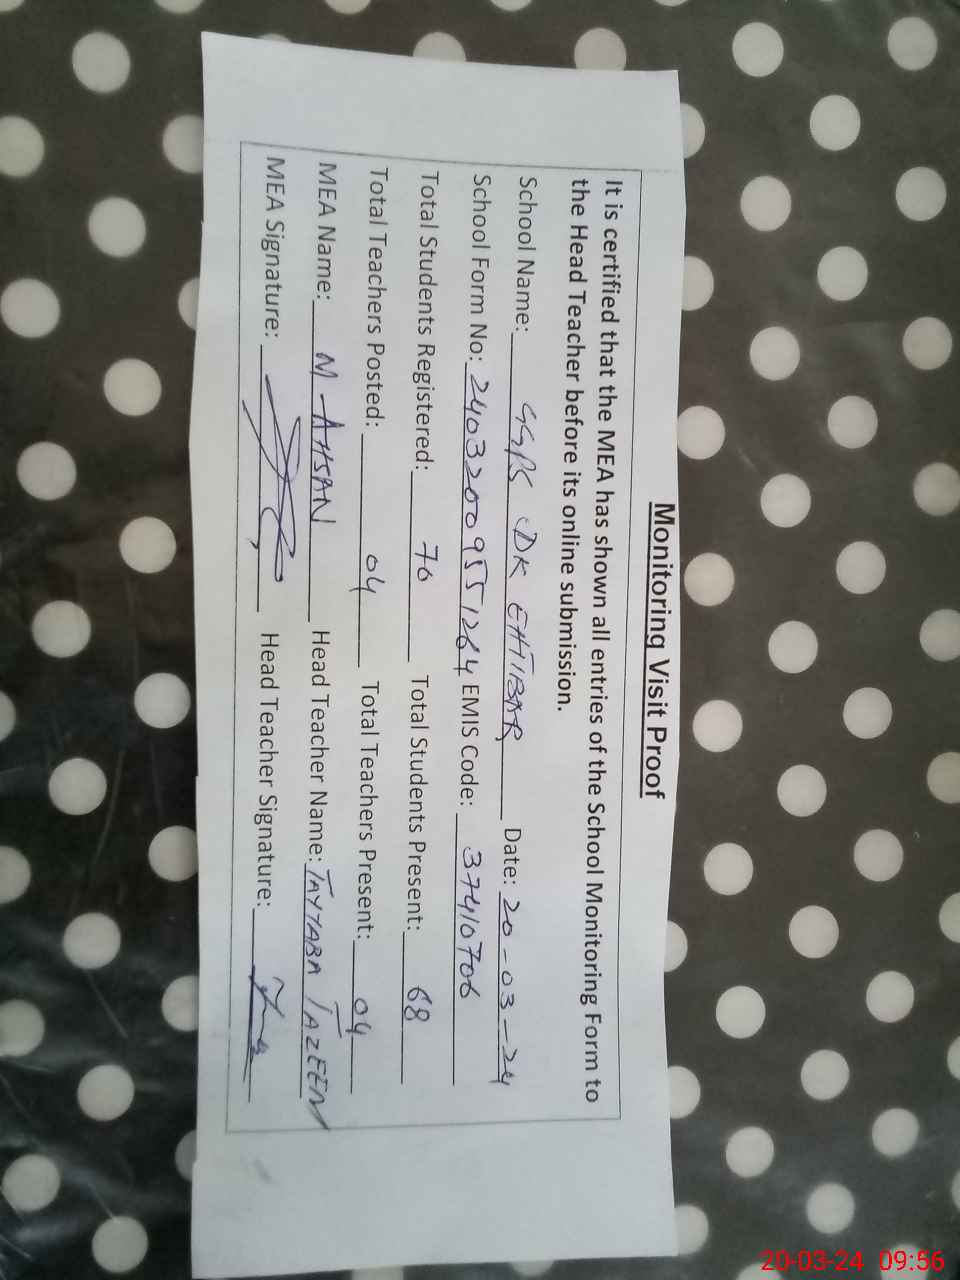 Monitoring Visit Proof
It is certified that the MEA has shown all entries of the School Monitoring Form to
the Head Teacher before its online submission.
School Name: GGPS DK EHTIBAR Date: 20-03-24
School Form No: 24032009551264 EMIS Code: 37410706
Total Students Registered: 70 Total Students Present: 68
Total Teachers Posted: 04 Total Teachers Present: 04
MEA Name: M AHSAN Head Teacher Name: TAYYABA TAZEEM
MEA Signature: Head Teacher Signature:
20-03-24 09:56